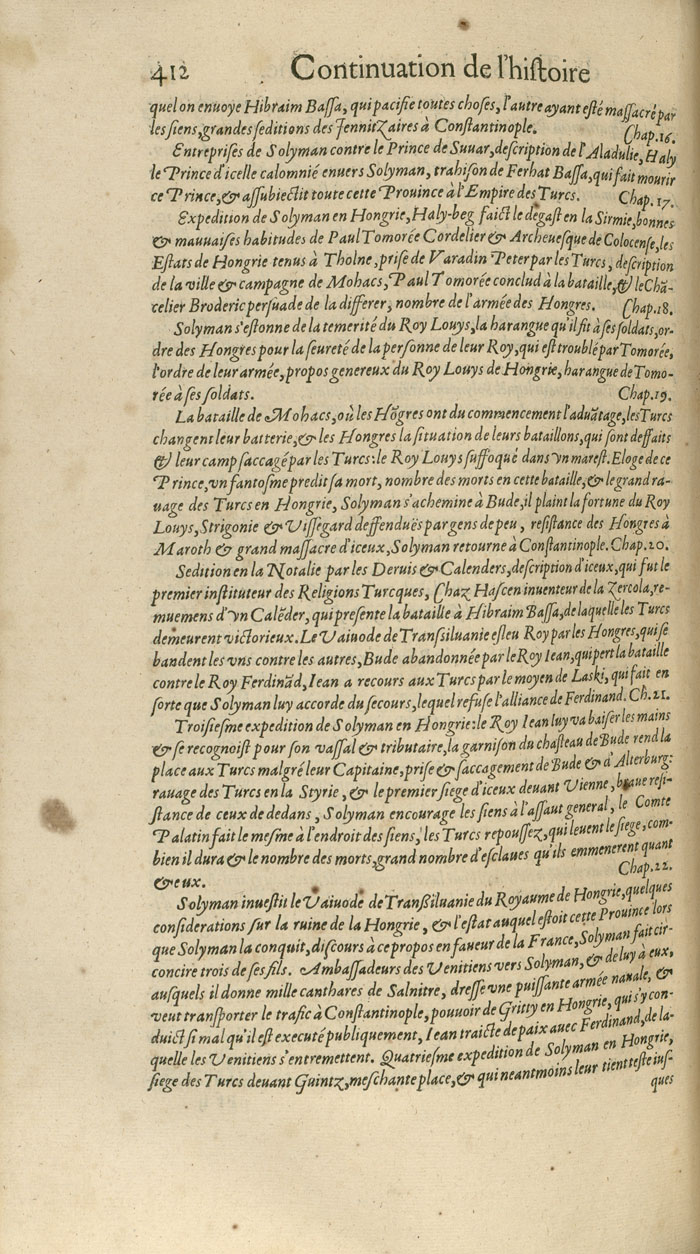 412 Continuation de l'histoire
quel on enuoye Hibraim Bassa, qui pacifie toutes choses, l'autre ayant esté massacré par
les siens, grandes seditions des Jennitzaires à Constantinople. Chap. 16.
Entreprises de Solyman contre le Prince de Suuar, description de l'Aladulie, Haly
le Prince d'icelle calomnié enuers Solyman, trahison de Ferhat Bassa, qui fait mourir
ce Prince, & assubiectit toute cette Prouince à l'Empire des Turcs. Chap. 17.
Expedition de Solyman en Hongrie, Haly-beg faict le degast en la Sirmie, bonnes
& mauuaises habitudes de Paul Tomorée Cordelier & Archeuesque de Colocense, les
Estats de Hongrie tenus à Tholne, prise de Varadin Peter par les Turcs, description
de la ville & campagne de Mohacs, Paul Tomorée conclud à la bataille, & le Chã-
celier Broderic persuade de la differer, nombre de l'armée des Hongres. Chap. 18.
Solyman s'estonne de la temerité du Roy Louys, la harangue qu'il fit à ses soldats, or-
dre des Hongres pour la seureté de la personne de leur Roy, qui est troublé par Tomorée,
l'ordre de leur armée, propos genereux du Roy Louys de Hongrie, harangue de Tomo-
rée à ses soldats. Chap. 19.
La bataille de Mohacs, où les Hõgres ont du commencement l'aduãtage, les Turcs
changent leur batterie, & les Hongres la situation de leurs bataillons, qui sont deffaits
& leur camp saccagé par les Turcs: le Roy Louys suffoqué dans vn marest. Eloge de ce
Prince, vn fantosme predit sa mort, nombre des morts en cette bataille, & le grand ra-
uage des Turcs en Hongrie, Solyman s'achemine à Bude, il plaint la fortune du Roy
Louys, Strigonie & Vissegard deffenduës par gens de peu, resistance des Hongres à
Maroth & grand massacre d'iceux, Solyman retourne à Constantinople. Chap. 20.
Sedition en la Notalie par les Deruis & Calenders, description d'iceux, qui fut le
premier instituteur des Religions Turcques, Chaz Hascen inuenteur de la Zercola, re-
muemens d'vn Calẽder, qui presente la bataille à Hibraim Bassa, de laquelle les Turcs
demeurent victorieux. Le Vaiuode de Transsiluanie esleu Roy par les Hongres, qui se
bandent les vns contre les autres, Bude abandonnée par le Roy Iean, qui pert la bataille
contre le Roy Ferdinãd, Iean a recours aux Turcs par le moyen de Laski, qui fait en
sorte que Solyman luy accorde du secours, lequel refuse l'alliance de Ferdinand. Ch. 21.
Troisiesme expedition de Solyman en Hongrie: le Roy Iean luy va baiser les mains
& se recognoist pour son vassal & tributaire, la garnison du chasteau de Bude rend la
place aux Turcs malgré leur Capitaine, prise & saccagement de Bude & d'Alterburg:
rauage des Turcs en la Styrie, & le premier siege d'iceux deuant Vienne, braue resi-
stance de ceux de dedans, Solyman encourage les siens à l'assaut general, le Comte
Palatin fait le mesme à l'endroit des siens, les Turcs repoussez, qui leuent le siege, com-
bien il dura & le nombre des morts, grand nombre d'esclaues qu'ils emmenerent quant
& eux. Chap. 22.
Solyman inuestit le Vaiuode de Transsiluanie du Royaume de Hongrie, quelques
considerations sur la ruine de la Hongrie, & l'estat auquel estoit cette Prouince lors
que Solyman la conquit, discours à ce propos en faueur de la France, Solyman fait cir-
concire trois de ses fils. Ambassadeurs des Venitiens vers Solyman, & de luy à eux,
ausquels il donne mille canthares de Salnitre, dresse vne puissante armée nauale, &
veut transporter le trafic à Constantinople, pouuoir de Gritty en Hongrie, qui s'y con-
duict si mal qu'il est executé publiquement, Iean traicte de paix auec Ferdinand, de la-
quelle les Venitiens s'entremettent. Quatriesme expedition de Solyman en Hongrie,
siege des Turcs deuant Guintz, meschante place, & qui neantmoins leur tient teste ius-
ques